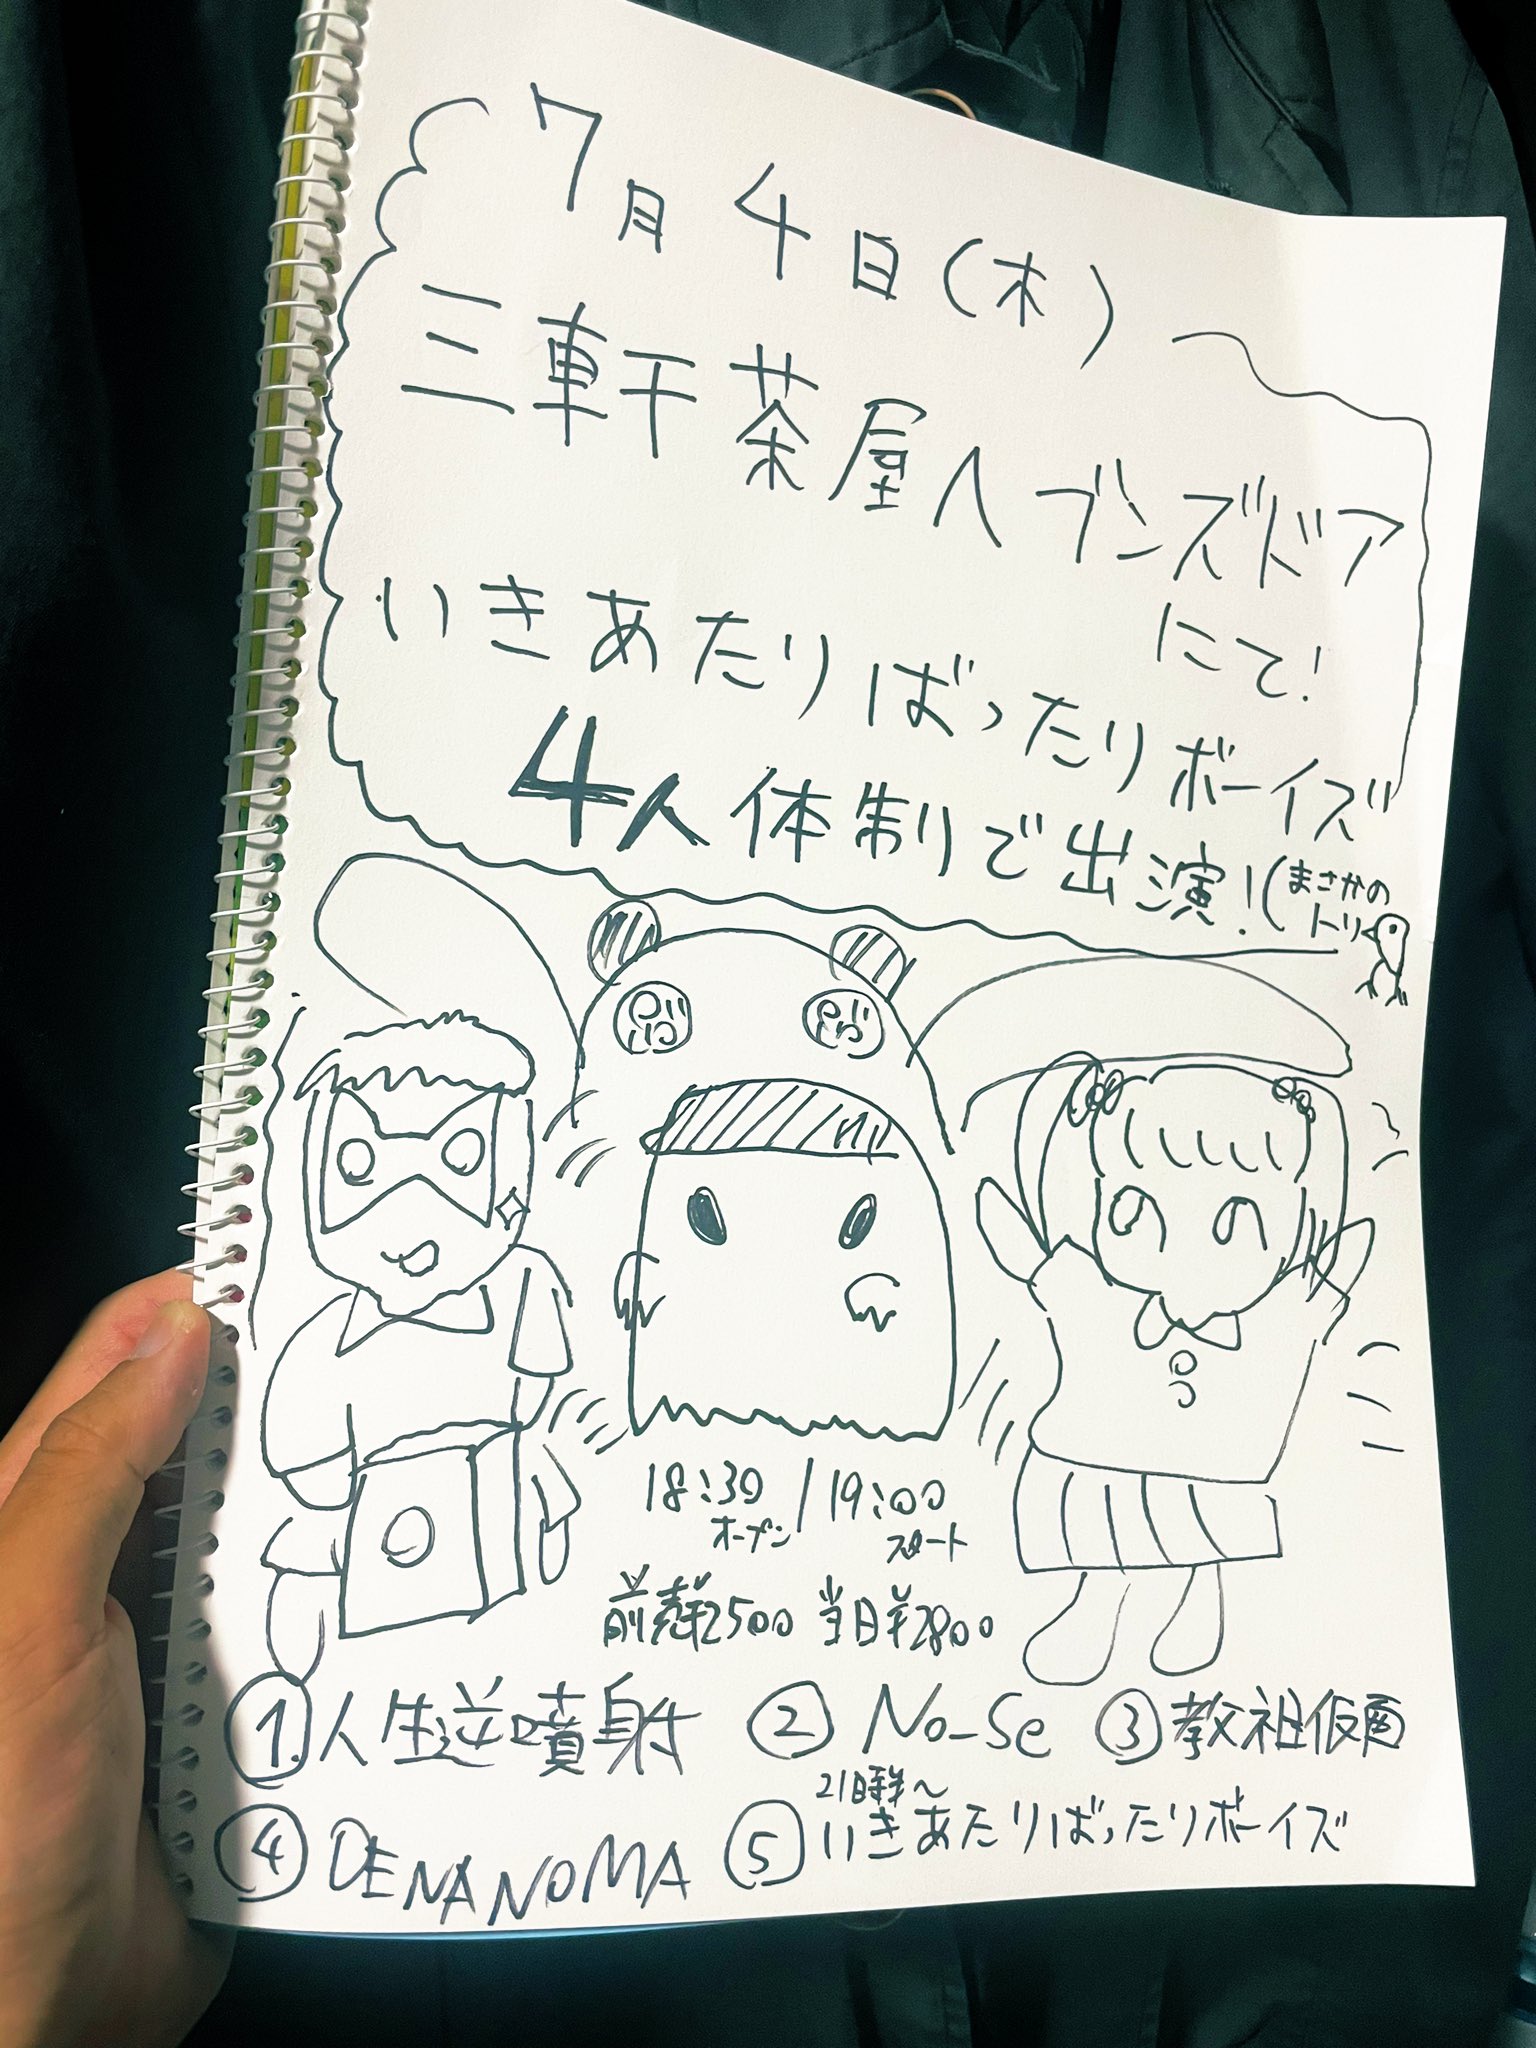 7月4日(木)
三軒茶屋ヘブンズドア
にて!
いきあたりばったりボーイズ
4人体制で出演!(まさかの
トリ
18:30 / 19:00
オープン スタート
前売¥2500 当日¥2800
①人生逆噴射 ②No-Se ③教祖仮面
21時半〜
④DENANOMA ⑤いきあたりばったりボーイズ